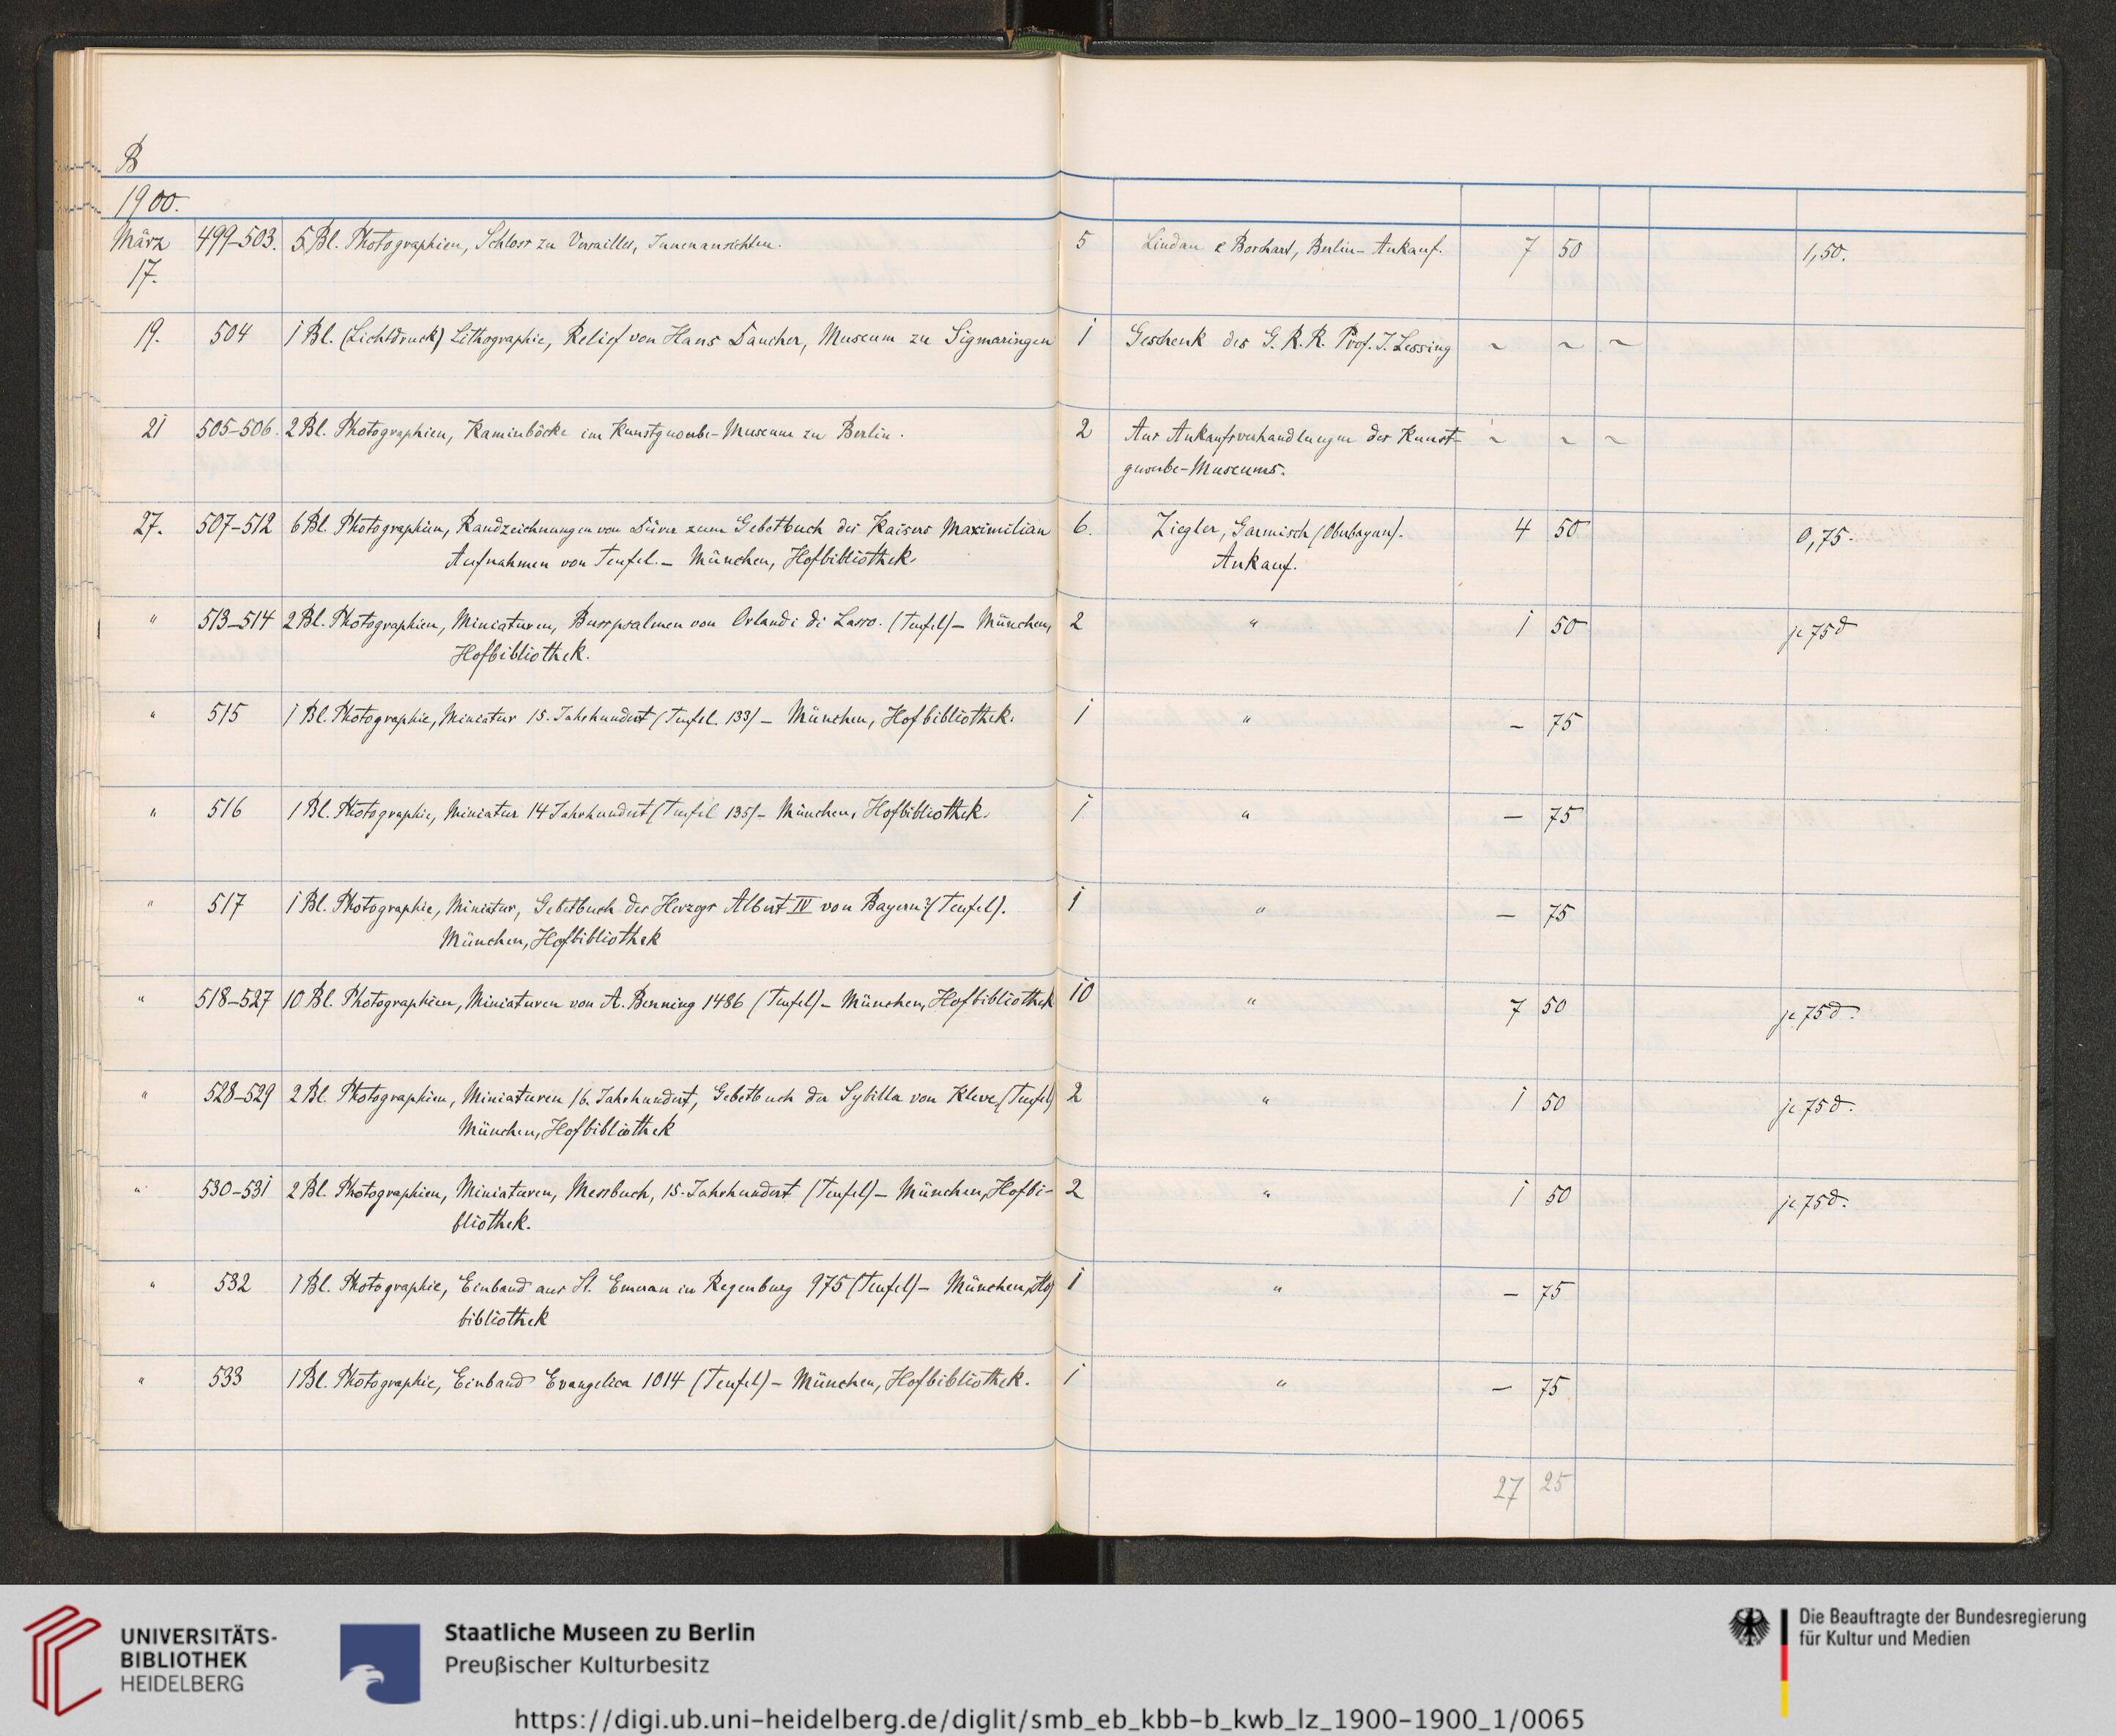 B
1900.
März 499-503. 5 Bl. Photographien, Schloss zu Versailles, Innenansichten. 5 Lindau & Borchart, Berlin - Ankauf. 7 50 1,50.
17.
19. 504 1 Bl. (Lichtdruck) Lithographie, Relief von Hans Daucher, Museum zu Sigmaringen 1 Geschenk des G. R. R. Prof. J. Lessing ~ ~ ~
21 505-506. 2 Bl. Photographien, Kaminböcke im Kunstgewerbe-Museum zu Berlin. 2 Aus Ankaufsverhandlungen des Kunst- ~ ~ ~
gewerbe-Museums.
27. 507-512 6 Bl. Photographien, Randzeichnungen von Dürer zum Gebetbuch des Kaisers Maximilian 6. Ziegler, Garmisch (Oberbayern). 4 50 0,75.
Aufnahmen von Teufel. - München, Hofbibliothek. Ankauf.
" 513-514 2 Bl. Photographien, Miniaturen, Busspsalmen von Orlandi di Lasso. (Teufel) - München, 2 " 1 50 je 75 d
Hofbibliothek.
" 515 1 Bl. Photographie, Miniatur 15. Jahrhundert (Teufel 133) - München, Hofbibliothek. 1 " - 75
" 516 1 Bl. Photographie, Miniatur 14 Jahrhundert (Teufel 135) - München, Hofbibliothek. 1 " - 75
" 517 1 Bl. Photographie, Miniatur, Gebetbuch des Herzogs Albert IV von Bayern (Teufel). 1 " - 75
München, Hofbibliothek
" 518-527 10 Bl. Photographien, Miniaturen von A. Benning 1486 (Teufel) - München, Hofbibliothek 10 " 7 50 je 75 d.
" 528-529 2 Bl. Photographien, Miniaturen 16. Jahrhundert, Gebetbuch der Sybilla von Kleve (Teufel) 2 " 1 50 je 75 d.
München, Hofbibliothek
" 530-531 2 Bl. Photographien, Miniaturen, Messbuch, 15. Jahrhundert (Teufel) - München, Hofbi- 2 " 1 50 je 75 d.
bliothek.
" 532 1 Bl. Photographie, Einband aus St. Emeran in Regenburg 975 (Teufel) - München, Hof 1 " - 75
bibliothek
" 533 1 Bl. Photographie, Einband Evangelica 1014 (Teufel) - München, Hofbibliothek. 1 " - 75
27 25
UNIVERSITÄTS-
BIBLIOTHEK
HEIDELBERG
Staatliche Museen zu Berlin
Preußischer Kulturbesitz
Die Beauftragte der Bundesregierung
für Kultur und Medien
https://digi.ub.uni-heidelberg.de/diglit/smb_eb_kbb-b_kwb_lz_1900-1900_1/0065